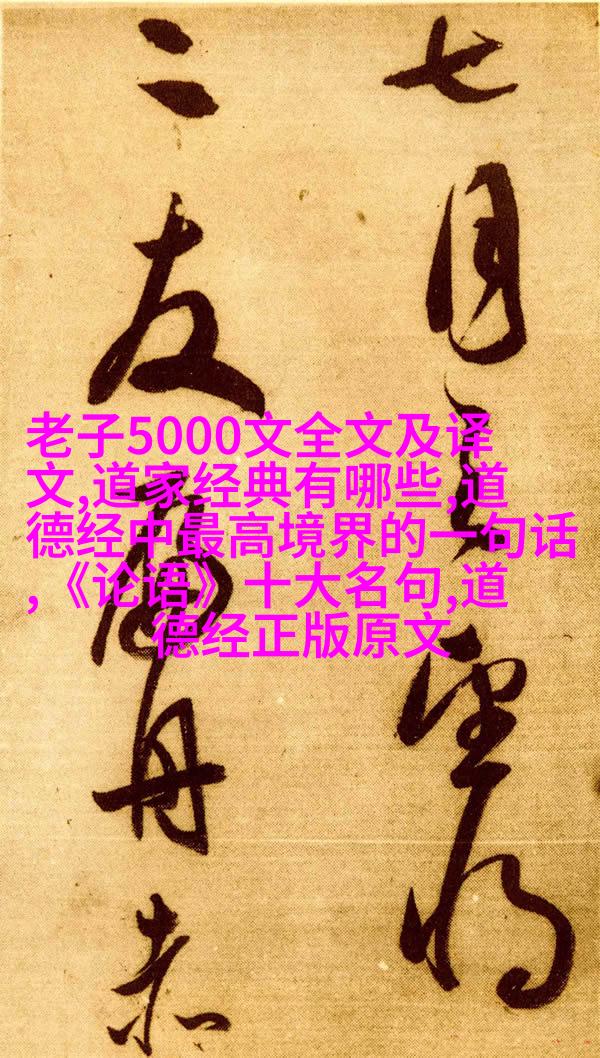 七月望
二友扁舟赤
老子5000文全文及译
文,道家经典有哪些,道
德经中最高境界的一句话
,《论语》十大名句,道
德经正版原文